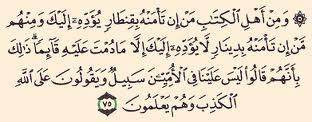 ۞ وَمِنْ أَهْلِ ٱلْكِتَٰبِ مَنْ إِن تَأْمَنْهُ بِقِنطَارٍ يُؤَدِّهِۦٓ إِلَيْكَ وَمِنْهُم
مَّنْ إِن تَأْمَنْهُ بِدِينَارٍ لَّا يُؤَدِّهِۦٓ إِلَيْكَ إِلَّا مَا دُمْتَ عَلَيْهِ قَآئِمًا ۗ ذَٰلِكَ
بِأَنَّهُمْ قَالُوا۟ لَيْسَ عَلَيْنَا فِى ٱلْأُمِّيِّـۧنَ سَبِيلٌ وَيَقُولُونَ عَلَى ٱللَّهِ
ٱلْكَذِبَ وَهُمْ يَعْلَمُونَ ٧٥